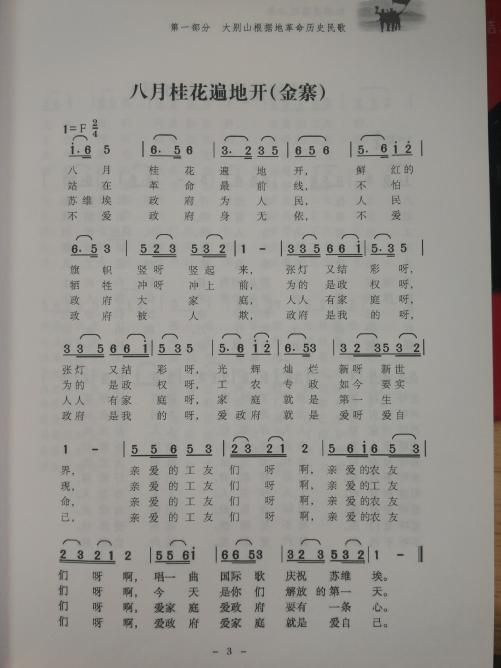 第一部分 大别山根据地革命历史民歌
八月桂花遍地开(金寨)
1=F 2/4
i. 6 5 | 6. 5 6 | 3. 2 3 5 | 6 5 6 | 5. 6 i 2 |
八 月 桂 花 遍 地 开, 鲜 红的
站 在 革 命 最 前 线, 不 怕
苏 维 埃 政 府 为 人 民, 人 民
不 爱 政 府 身 无 依, 不 爱
6. 5 3 | 5 2 3 5 3 2 | 1 - | 3 3 5 6 6 i | 5. 3 5 |
旗 帜 竖呀 竖起 来, 张灯 又结 彩 呀,
牺 牲 冲呀 冲上 前, 为的 是政 权 呀,
政 府 大 家 庭, 人人 有家 庭 呀,
政 府 被 人 欺, 政府 是我 的 呀,
3 3 5 6 6 i | 5. 3 5 | 5. 6 i 2 | 6. 5 3 | 3 2 3 5 3 2 |
张灯 又结 彩 呀, 光 辉 灿 烂 新呀 新世
为的 是政 权 呀, 工 农 专 政 如今 要实
人人 有家 庭 呀, 家 庭 就 是 第一 生
政府 是我 的 呀, 爱 政府 就 是 爱呀 爱自
1 - | 5 5 6 5 3 | 2 3 2 1 2 | 5 5 6 i 6 5 3 |
界, 亲 爱 的 工 友 们 呀 啊, 亲 爱 的 农 友
现, 亲 爱 的 工 友 们 呀 啊, 亲 爱 的 工 友
命, 亲 爱 的 工 友 们 呀 啊, 亲 爱 的 农 友
己, 亲 爱 的 工 友 们 呀 啊, 亲 爱 的 农 友
2 3 2 1 2 | 5 5 6 i | 6 6 5 3 | 2 3 5 5 3 2 | 1 - ‖
们 呀 啊, 唱一 曲 国际 歌 庆祝 苏维 埃。
们 呀 啊, 今 天 是你 们 解放 的第一 天。
们 呀 啊, 爱家 庭 爱政 府 要有 一条 心。
们 呀 啊, 爱政 府 爱家 庭 就是 爱自 己。
- 3 -